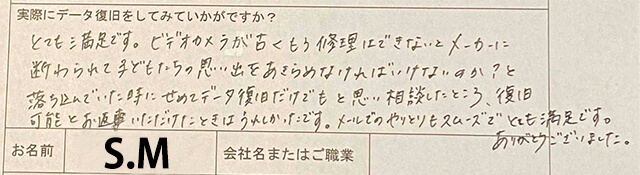 実際にデータ復旧をしてみていかがですか?
とても満足です。ビデオカメラが古くもう修理はできないとメーカーに
断わられて子どもたちの思い出をあきらめなければいけないのか?と
落ち込んでいた時にせめてデータ復旧だけでもと思い相談したところ、復旧
可能とお返事いただけたときはうれしかったです。メールでのやりとりもスムーズでとても満足です。
ありがとうございました。
お名前 S.M 会社名またはご職業